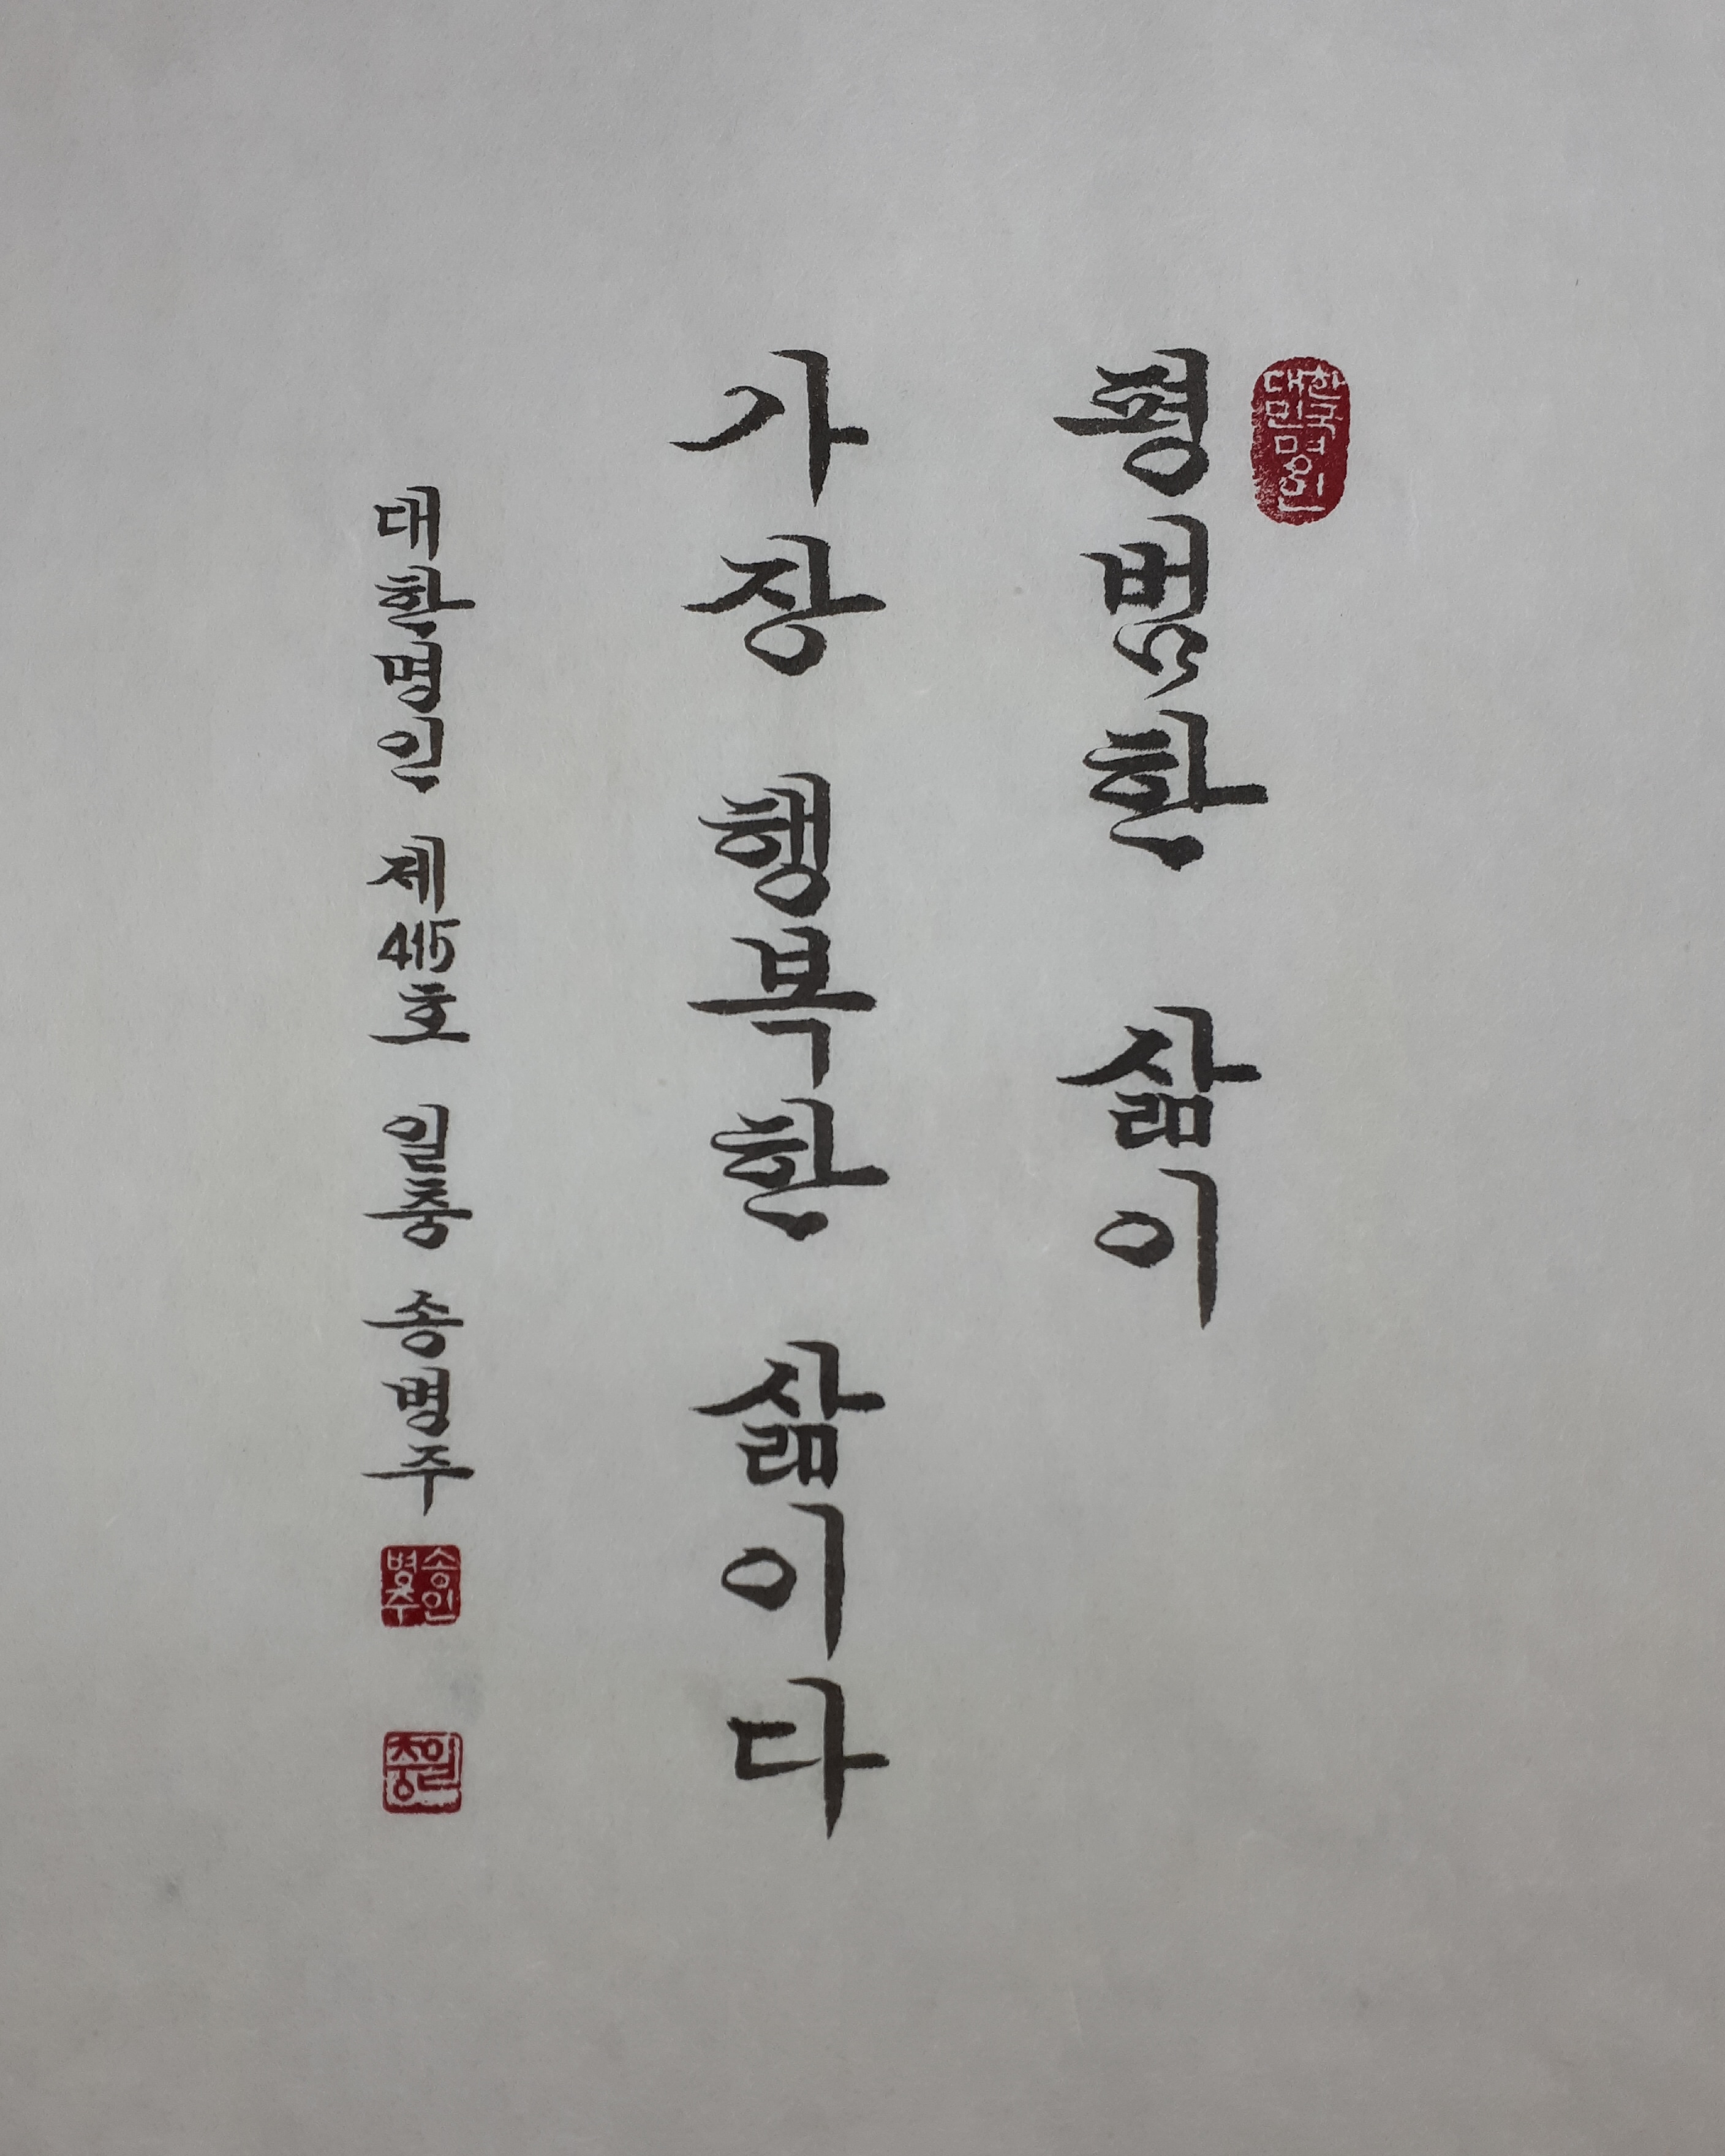 대한민국명인
평범한 삶이
가장 행복한 삶이다
대한명인 제415호 일충 송병주
송인병주
일충